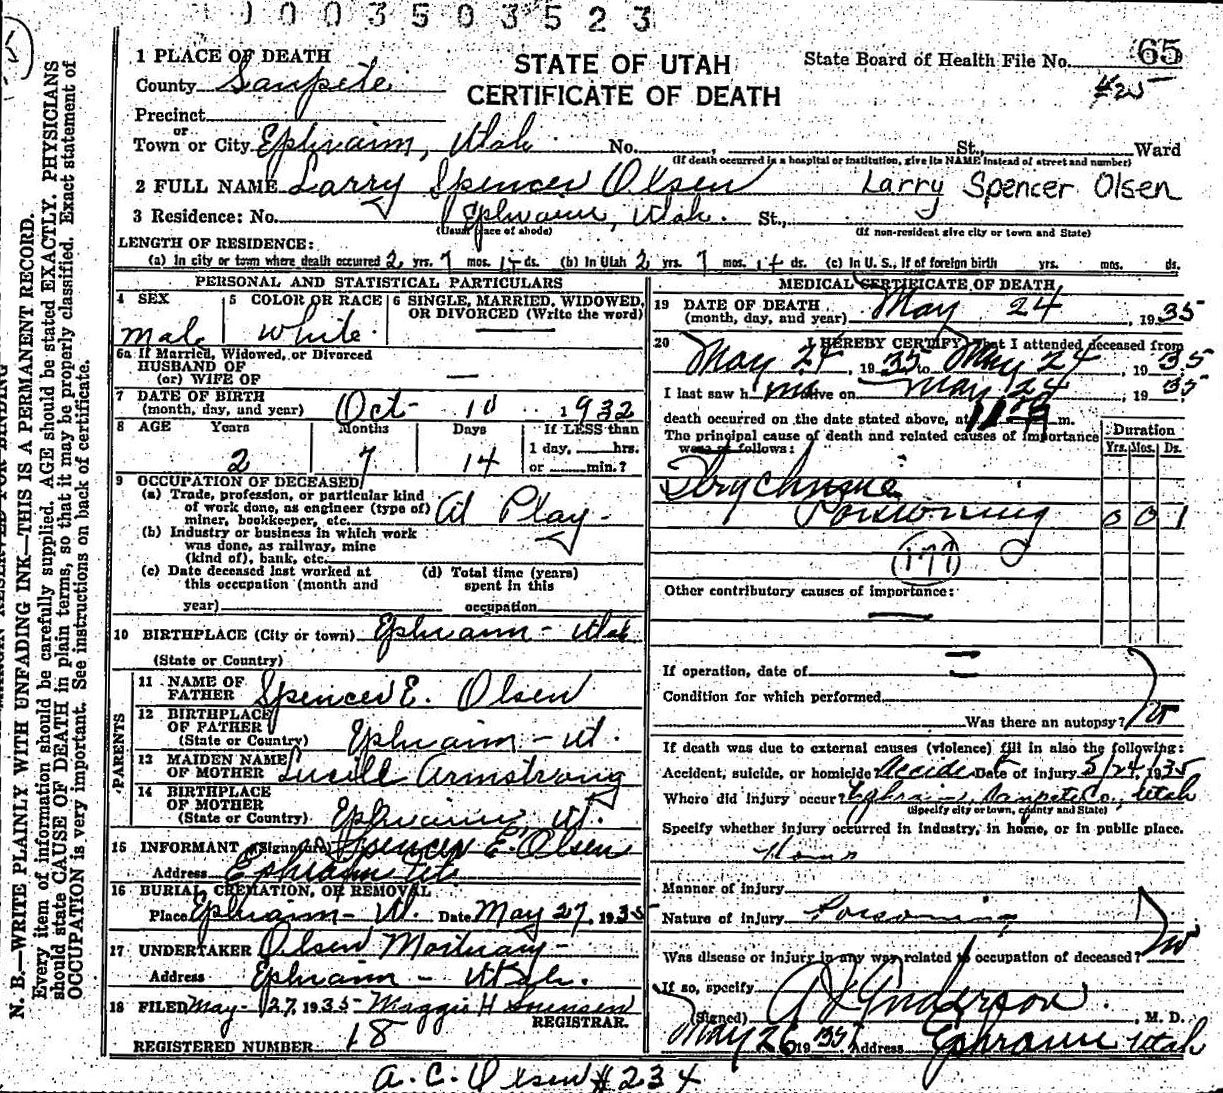 1003503523
1 PLACE OF DEATH
STATE OF UTAH
CERTIFICATE OF DEATH
State Board of Health File No. 65
425
County Sanpete
Precinct
or
Town or City Ephraim, Utah No. , St., Ward
(If death occurred in a hospital or institution, give its NAME instead of street and number)
2 FULL NAME Larry Spencer Olsen Larry Spencer Olsen
3 Residence: No. Ephraim, Utah. St.,
(Usual place of abode) (If non-resident give city or town and State)
LENGTH OF RESIDENCE:
(a) In city or town where death occurred 2 yrs. 7 mos. 14 ds. (b) In Utah 2 yrs. 7 mos. 14 ds. (c) In U. S., if of foreign birth yrs. mos. ds.
PERSONAL AND STATISTICAL PARTICULARS
4 SEX 5 COLOR OR RACE 6 SINGLE, MARRIED, WIDOWED, OR DIVORCED (Write the word)
Male White —
6a If Married, Widowed, or Divorced
HUSBAND OF
(or) WIFE OF —
7 DATE OF BIRTH
(month, day, and year) Oct- 10 1932
8 AGE Years Months Days If LESS than
1 day, hrs.
2 7 14 or min.?
9 OCCUPATION OF DECEASED
(a) Trade, profession, or particular kind
of work done, as engineer (type of)
miner, bookkeeper, etc. At Play-
(b) Industry or business in which work
was done, as railway, mine
(kind of), bank, etc.
(c) Date deceased last worked at
this occupation (month and
year)
(d) Total time (years)
spent in this
occupation
10 BIRTHPLACE (City or town) Ephraim - Utah
(State or Country)
PARENTS
11 NAME OF
FATHER Spencer E. Olsen
12 BIRTHPLACE
OF FATHER
(State or Country) Ephraim - Ut.
13 MAIDEN NAME
OF MOTHER Lucill Armstrong
14 BIRTHPLACE
OF MOTHER
(State or Country) Ephraim, Ut.
15 INFORMANT (Signature) Spencer E. Olsen
Address Ephraim
16 BURIAL, CREMATION, OR REMOVAL
Place Ephraim - Ut. Date May 27, 1935
17 UNDERTAKER Olsen Mortuary -
Address Ephraim - Utah.
18 FILED May- 27, 1935- Maggie H Sorensen
REGISTRAR.
REGISTERED NUMBER 18
MEDICAL CERTIFICATE OF DEATH
19 DATE OF DEATH
(month, day, and year) May 24, 1935
20 I HEREBY CERTIFY, That I attended deceased from
May 24, 1935 to May 24, 1935
I last saw h im alive on May 24, 1935
death occurred on the date stated above, at m.
The principal cause of death and related causes of importance
were as follows:
Duration
Yrs. Mos. Ds.
Strychnine
Poisoning 0 0 1
177
Other contributory causes of importance:
—
If operation, date of
Condition for which performed
Was there an autopsy? no
If death was due to external causes (violence) fill in also the following:
Accident, suicide, or homicide Accident Date of injury 5/24, 1935
Where did injury occur? Ephraim, Sanpete Co., Utah
(Specify city or town, county and State)
Specify whether injury occurred in industry, in home, or in public place.
Home
Manner of injury
Nature of injury Poisoning
Was disease or injury in any way related to occupation of deceased? no
If so, specify
(Signed) Anderson, M. D.
May 26, 1935 Address Ephraim Utah
A. C. Olsen #234
N. B.—WRITE PLAINLY WITH UNFADING INK—THIS IS A PERMANENT RECORD.
Every item of information should be carefully supplied. AGE should be stated EXACTLY. PHYSICIANS
should state CAUSE OF DEATH in plain terms, so that it may be properly classified. Exact statement of
OCCUPATION is very important. See instructions on back of certificate.